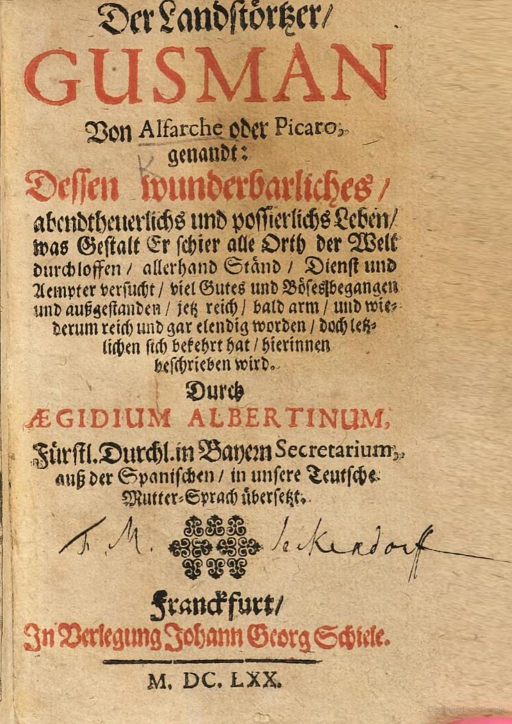 Der Landstörtzer/
GUSMAN
Von Alfarche oder Picaro,
genandt:
Dessen wunderbarliches/
abendtheuerlichs und possierlichs Leben/
was Gestalt Er schier alle Orth der Welt
durchloffen/ allerhand Ständ/ Dienst und
Aempter versucht/ viel Gutes und Böses begangen
und außgestanden/ jetz reich/ bald arm/ und wie-
derum reich und gar elendig worden/ doch letz-
lichen sich bekehrt hat/ hierinnen
beschrieben wird.
Durch
ÆGIDIUM ALBERTINUM,
Fürstl. Durchl. in Bayern Secretarium,
auß der Spanischen/ in unsere Teutsche
Mutter-Sprach übersetzt.
F. M. Seckendorff
Franckfurt/
In Verlegung Johann Georg Schiele.
M. DC. LXX.